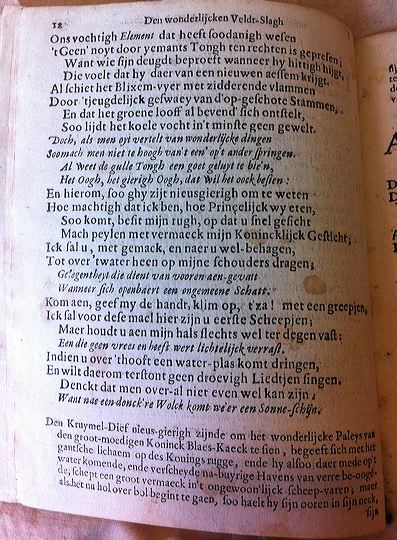 12 Den wonderlijcken Veldt-Slagh
Ons vochtigh Element dat heeft soodanigh wesen
't Geen' noyt door yemants Tongh ten rechten is gepresen;
Want wie sijn deugt beproeft wanneer hy hittigh hijgt,
Die voelt dat hy daer van een nieuwen aessem krijgt.
Al schiet het Blixem-vyer met zidderende vlammen
Door 'tjeugdelijck geswaey van d'op-geschote Stammen,
En dat het groene looff al bevend' sich ontstelt,
Soo lijdt het koele vocht in't minste geen gewelt.
Doch, als men opt vertelt van wonderlijcke dingen
Soo mach men niet te hoogh van't een' op't ander springen.
Al weet de gulle Tongh een goet geluyt te bie'n,
Het Oogh, het gierigh Oogh, dat wil het oock besien:
En hierom, soo ghy zijt nieusgierigh om te weten
Hoe machtigh dat ick ben, hoe Princelijck wy eten,
Soo komt, besit mijn rugh, op dat u snel gesicht
Mach peylen met vermaeck mijn Konincklijck Gesticht;
Ick sal u, met gemack, en naer u wel-behagen,
Tot over 'twater heen op mijne schouders dragen;
Gelegentheyt die dient van vooren aen-gevatt
Wanneer sich openbaert een ongemeene Schatt.
Kom aen, geef my de handt, klim op, t'za! met een greepjen,
Ick sal voor dese mael hier zijn u eerste Scheepjen;
Maer houdt u aen mijn hals slechts wel ter degen vast:
Een die geen vrees en heeft wert lichtelijck verrast.
Indien u over 'thooft een water-plas komt dringen,
En wilt daerom terstont geen droevigh Liedtjen singen.
Denckt dat men over-al niet even wel kan zijn,
Want nae een donck're Wolck komt we'er een Sonne-schijn.
Den Kruymel-Dief nieus-gierigh zijnde om het wonderlijcke Paleys van
den groot-moedigen Koninck Blaes-Kaeck te sien, begeeft sich met het
gantsche lichaem op des Konings rugge, ende hy alsoo daer mede op't
water komende, ende verscheyde na-buyrige Havens van verre be-ooge-
de, schept een groot vermaeck in't ongewoonlijck scheep-varen; maer
als het nu hol over bol begint te gaen, soo haelt hy sijn ooren in sijn neck,
sijn